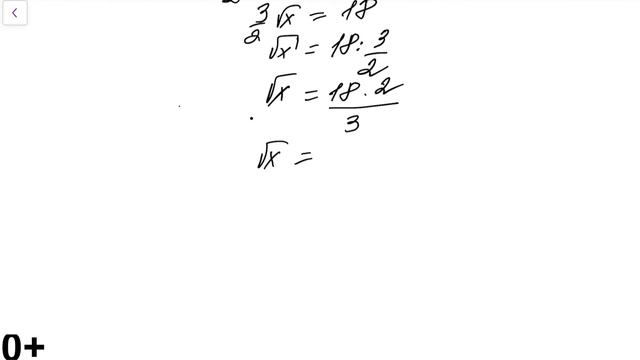 3/2 √x = 18
√x = 18 : 3/2
√x = 18 · 2/3
√x =
0+